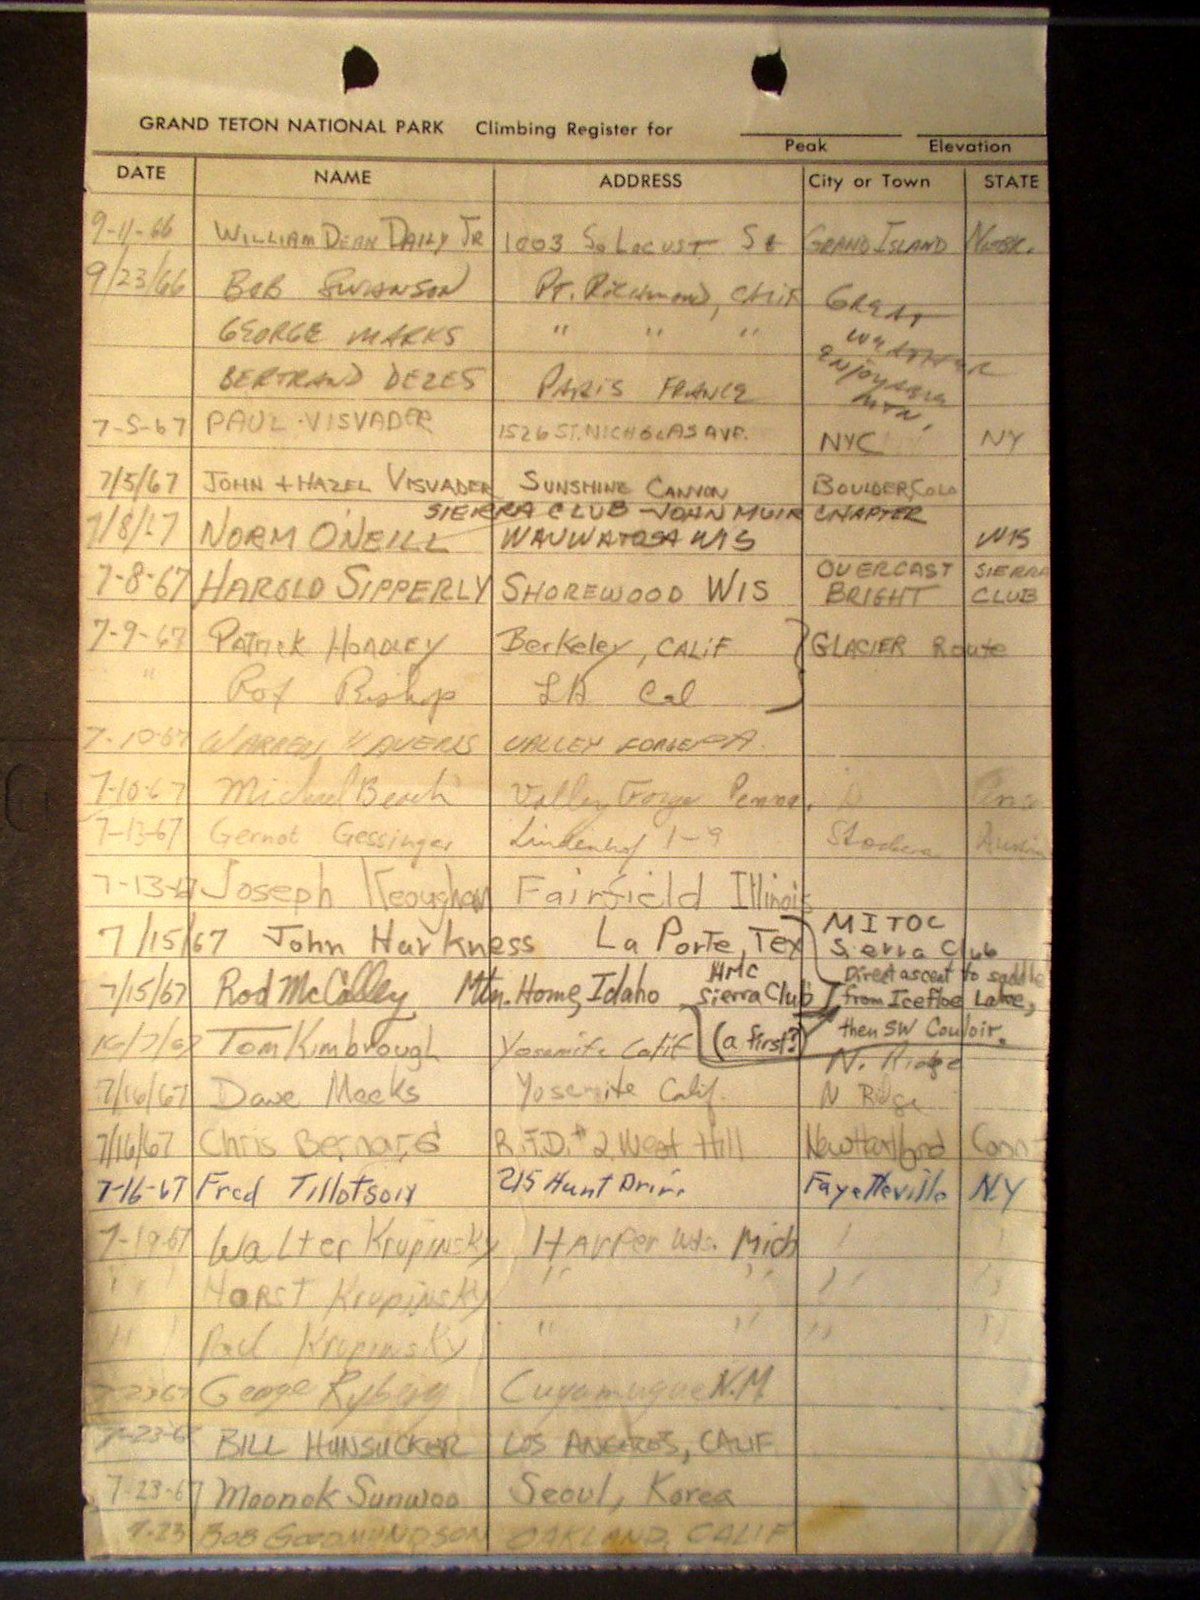 GRAND TETON NATIONAL PARK Climbing Register for
Peak Elevation
DATE NAME ADDRESS City or Town STATE
9-11-66 WILLIAM DEAN DAILY JR 1003 So LOCUST St GRAND ISLAND Nebr.
9/23/66 BOB SWANSON Pt. Richmond, CALIF GREAT
GEORGE MARKS " " " WEATHER
BERTRAND DEZES PARIS FRANCE ENJOYABLE
MTN.
7-5-67 PAUL VISVADER 1526 ST. NICHOLAS AVE. NYC NY
7/5/67 JOHN + HAZEL VISVADER SUNSHINE CANYON BOULDER, COLO
SIERRA CLUB - JOHN MUIR CHAPTER
7/8/67 NORM O'NEILL WAUWATOSA WIS WIS
7-8-67 HAROLD SIPPERLY SHOREWOOD WIS OVERCAST BRIGHT SIERRA CLUB
7-9-67 PATRICK HOADLEY Berkeley, CALIF GLACIER Route
" Bishop LA Cal
7-10-67 WARREN VALLEY FORGE PA.
7-10-67 Michael Valley Forge Penna.
7-13-67 Gernot Gessinger Lindenhof 1-9
7-13-67 Joseph Keoughan Fairfield Illinois
7/15/67 John Harkness La Porte, Tex MITOC
Sierra Club
7/15/67 Rod McCalley Mtn. Home, Idaho HMC Sierra Club Direct ascent to saddle
from Icefloe Lake,
(a first?) then SW Couloir.
16/7/67 Tom Kimbrough Yosemite Calif N. Ridge
7/16/67 Dave Meeks Yosemite Calif. N Ridge
7/16/67 Chris Bernard R.F.D. #2 West Hill New Hartford Conn
7-16-67 Fred Tillotson 215 Hunt Drive Fayetteville N.Y
7-19-67 Walter Krupinsky Harper Wds. Mich
" " HORST Krupinsky " " " "
" Paul Krupinsky " " " "
7-23-67 George Cuyamungue N.M
7-23-67 BILL HUNSUCKER LOS ANGELES, CALIF
7-23-67 Moonok Sunwoo Seoul, Korea
7-23 BOB GOODMUNDSON OAKLAND, CALIF